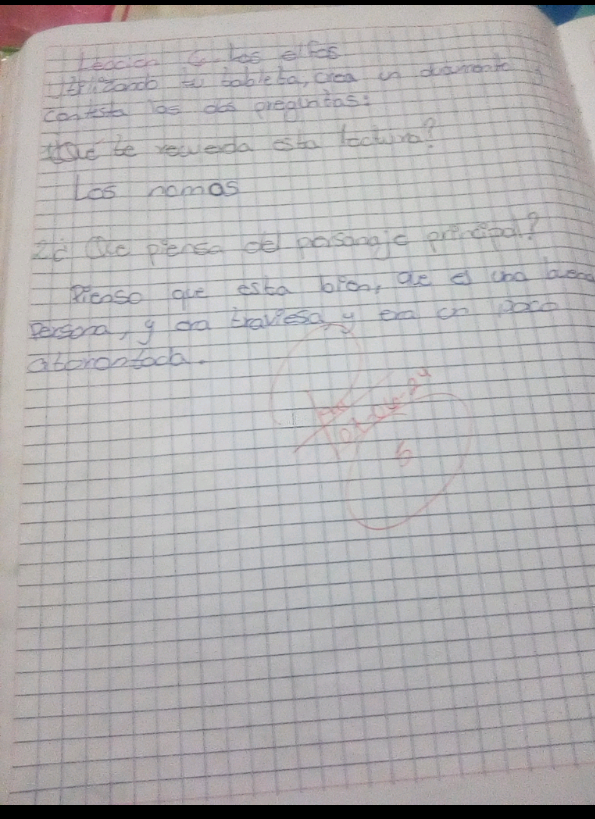 Lección 6 los elfos
Utilizando tu tableta, crea un documento y
contesta las dos preguntas:
1¿Qué te recuerda esta lectura?
Los nomos
2¿ Que piensa del personaje principal?
Pienso que esta bien, que es una buena
persona, y era traviesa, y era un poco
atarantada.
01-06-24